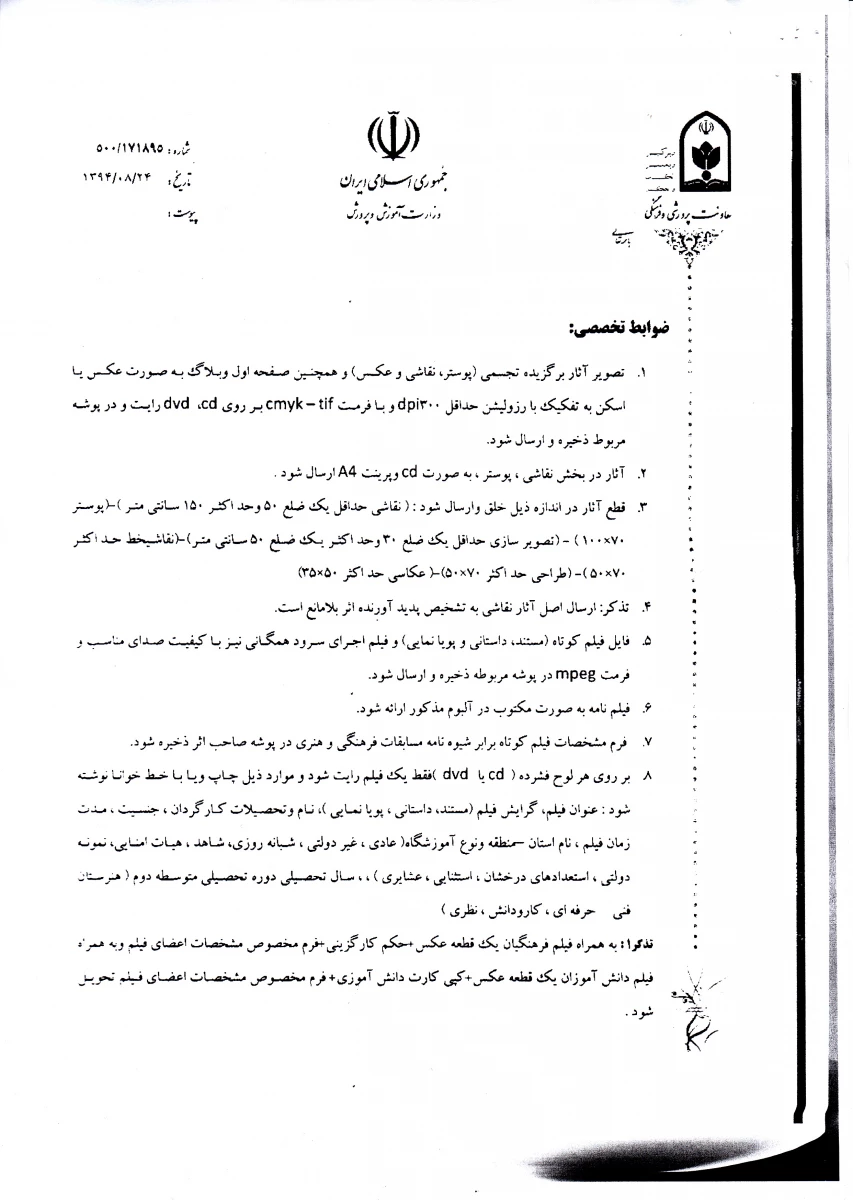 شماره: ۵۰۰/۱۷۱۸۹۵
تاریخ: ۱۳۹۴/۰۸/۲۴
پیوست:
جمهوری اسلامی ایران
وزارت آموزش و پرورش
معاونت پرورشی و فرهنگی
باسمه تعالی
ضوابط تخصصی:
۱. تصویر آثار برگزیده تجسمی (پوستر، نقاشی و عکس) و همچنین صفحه اول وبلاگ به صورت عکس یا
اسکن به تفکیک با رزولیشن حداقل dpi۳۰۰ و با فرمت cmyk – tif بر روی dvd ،cd رایت و در پوشه
مربوط ذخیره و ارسال شود.
۲. آثار در بخش نقاشی ، پوستر ، به صورت cd وپرینت A4 ارسال شود .
۳. قطع آثار در اندازه ذیل خلق وارسال شود : ( نقاشی حداقل یک ضلع ۵۰ وحد اکثر ۱۵۰ سانتی متر )-(پوستر
۱۰۰×۷۰ ) - (تصویر سازی حداقل یک ضلع ۳۰ وحد اکثر یک ضلع ۵۰ سانتی متر)-(نقاشیخط حد اکثر
۵۰×۷۰ )- (طراحی حد اکثر ۵۰×۷۰)-( عکاسی حد اکثر ۳۵×۵۰)
۴. تذکر: ارسال اصل آثار نقاشی به تشخیص پدید آورنده اثر بلامانع است.
۵. فایل فیلم کوتاه (مستند، داستانی و پویا نمایی) و فیلم اجرای سرود همگانی نیز با کیفیت صدای مناسب و
فرمت mpeg در پوشه مربوطه ذخیره و ارسال شود.
۶. فیلم نامه به صورت مکتوب در آلبوم مذکور ارائه شود.
۷. فرم مشخصات فیلم کوتاه برابر شیوه نامه مسابقات فرهنگی و هنری در پوشه صاحب اثر ذخیره شود.
۸ بر روی هر لوح فشرده ( cd یا dvd )فقط یک فیلم رایت شود و موارد ذیل چاپ ویا با خط خوانا نوشته
شود : عنوان فیلم، گرایش فیلم (مستند، داستانی ، پویا نمایی )، نام وتحصیلات کارگردان ، جنسیت ، مدت
زمان فیلم ، نام استان –منطقه ونوع آموزشگاه( عادی ، غیر دولتی ، شبانه روزی، شاهد ، هیات امنایی، نمونه
دولتی ، استعدادهای درخشان ، استثنایی ، عشایری ) ، ، سال تحصیلی دوره تحصیلی متوسطه دوم ( هنرستان
فنی حرفه ای ، کارودانش ، نظری )
تذکر۱: به همراه فیلم فرهنگیان یک قطعه عکس+حکم کارگزینی+فرم مخصوص مشخصات اعضای فیلم وبه همراه
فیلم دانش آموزان یک قطعه عکس+کپی کارت دانش آموزی+ فرم مخصوص مشخصات اعضای فیلم تحویل
شود .